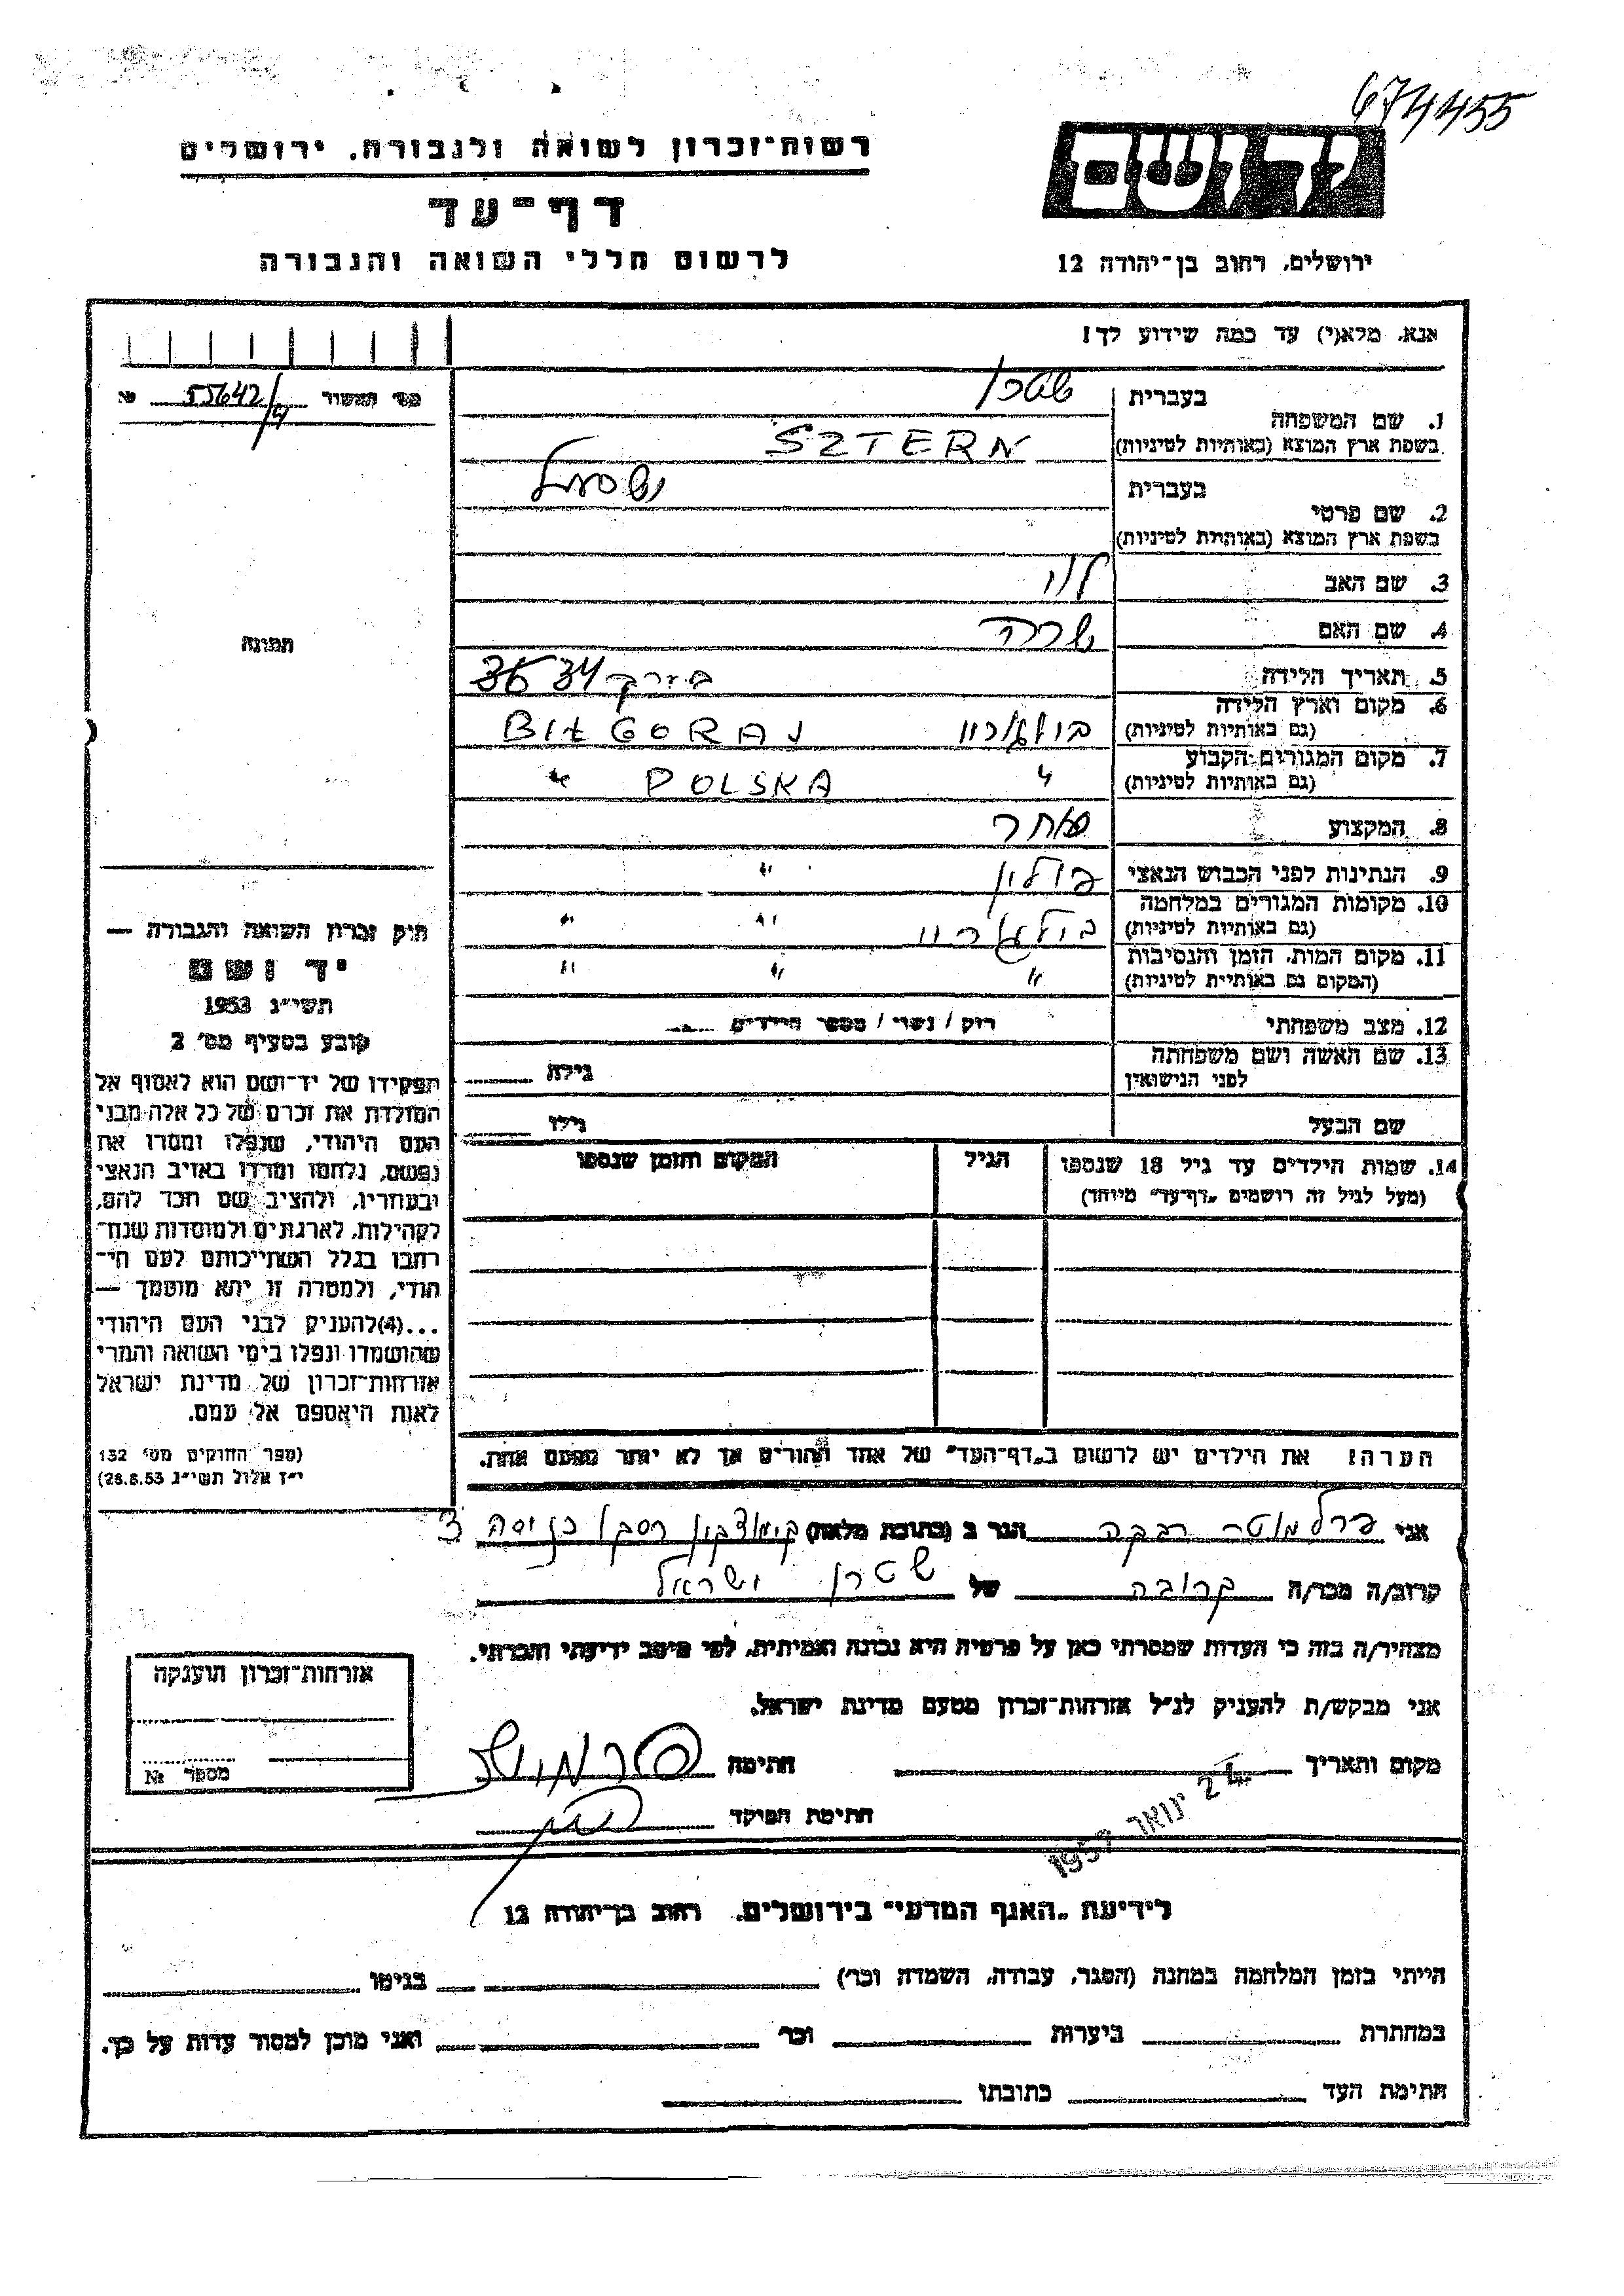 674455
רשות-זכרון לשואה ולגבורה. ירושלים
דף-עד
לרשום חללי השואה והגבורה
יד ושם
ירושלים, רחוב בן-יהודה 12
אנא, מלא(י) עד כמה שידוע לך!
מס' המשור 55642/4 №
1. שם המשפחה
בעברית שטרן
בשפת ארץ המוצא (באותיות לטיניות) SZTERN
2. שם פרטי
בעברית ישראל
בשפת ארץ המוצא (באותיות לטיניות)
3. שם האב לוי
4. שם האם שרה
5. תאריך הלידה בערך 34
6. מקום וארץ הלידה
(גם באותיות לטיניות) בילגוריי BIŁGORAJ
7. מקום המגורים הקבוע
(גם באותיות לטיניות) " POLSKA "
8. המקצוע סוחר
9. הנתינות לפני הכבוש הנאצי פולין "
10. מקומות המגורים במלחמה
(גם באותיות לטיניות) בילגוריי " "
11. מקום המות, הזמן והנסיבות
(המקום גם באותיית לטיניות) " " "
12. מצב משפחתי רוק / נשוי / מספר הילדים
13. שם האשה ושם משפחתה
לפני הנישואין גילה
שם הבעל גילו
14. שמות הילדים עד גיל 18 שנספו
(מעל לגיל זה רושמים "דף-עד" מיוחד)
הגיל
המקום והזמן שנספו
הערה: את הילדים יש לרשום ב"דף-העד" של אחד ההורים אך לא יותר מפעם אחת.
תמונה
חוק זכרון השואה והגבורה —
יד ושם
תשי"ג 1953
קובע בסעיף מס' 2
תפקידו של יד-ושם הוא לאסוף אל
המולדת את זכרם של כל אלה מבני
העם היהודי, שנפלו ומסרו את
נפשם, נלחמו ומרדו באויב הנאצי
ובעוזריו, ולהציב שם וזכר להם,
לקהילות, לארגונים ולמוסדות שנח-
רבו בגלל השתייכותם לעם הי-
הודי, ולמטרה זו יהא מוסמך —
...(4)להעניק לבני העם היהודי
שהושמדו ונפלו בימי השואה והמרי
אזרחות-זכרון של מדינת ישראל
לאות היאספם אל עמם.
(ספר החוקים מס' 132
י"ז אלול תשי"ג 28.8.53)
אני פרלמוטר רבקה הגר ב (כתובת מלאה)
קרוב/ה מכר/ה קרובה של שטרן ישראל
מצהיר/ה בזה כי העדות שמסרתי כאן על פרטיה היא נכונה ואמיתית, לפי מיטב ידיעתי והכרתי.
אני מבקש/ת להעניק לנ"ל אזרחות-זכרון מטעם מדינת ישראל.
מקום ותאריך חתימה
24 ינואר 1957
חתימת הפוקד
אזרחות-זכרון הוענקה
מספר №
לידיעת "האגף המדעי" בירושלים, רחוב בן-יהודה 12
הייתי בזמן המלחמה במחנה (הסגר, עבודה, השמדה וכו') בגיטו
במחתרת ביערות וכו' ואני מוכן למסור עדות על כך.
חתימת העד כתובתו